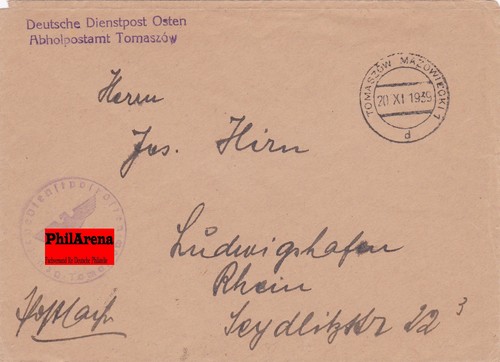 Deutsche Dienstpost Osten
Abholpostamt Tomaszów
TOMASZÓW MAZOWIECKI 1
20 XI 1939
d
Herrn
Jos. Hirn
PhilArena
Fachversand für Deutsche Philatelie
Ludwigshafen
Rhein
Postsache
Seydlitzstr 22 3